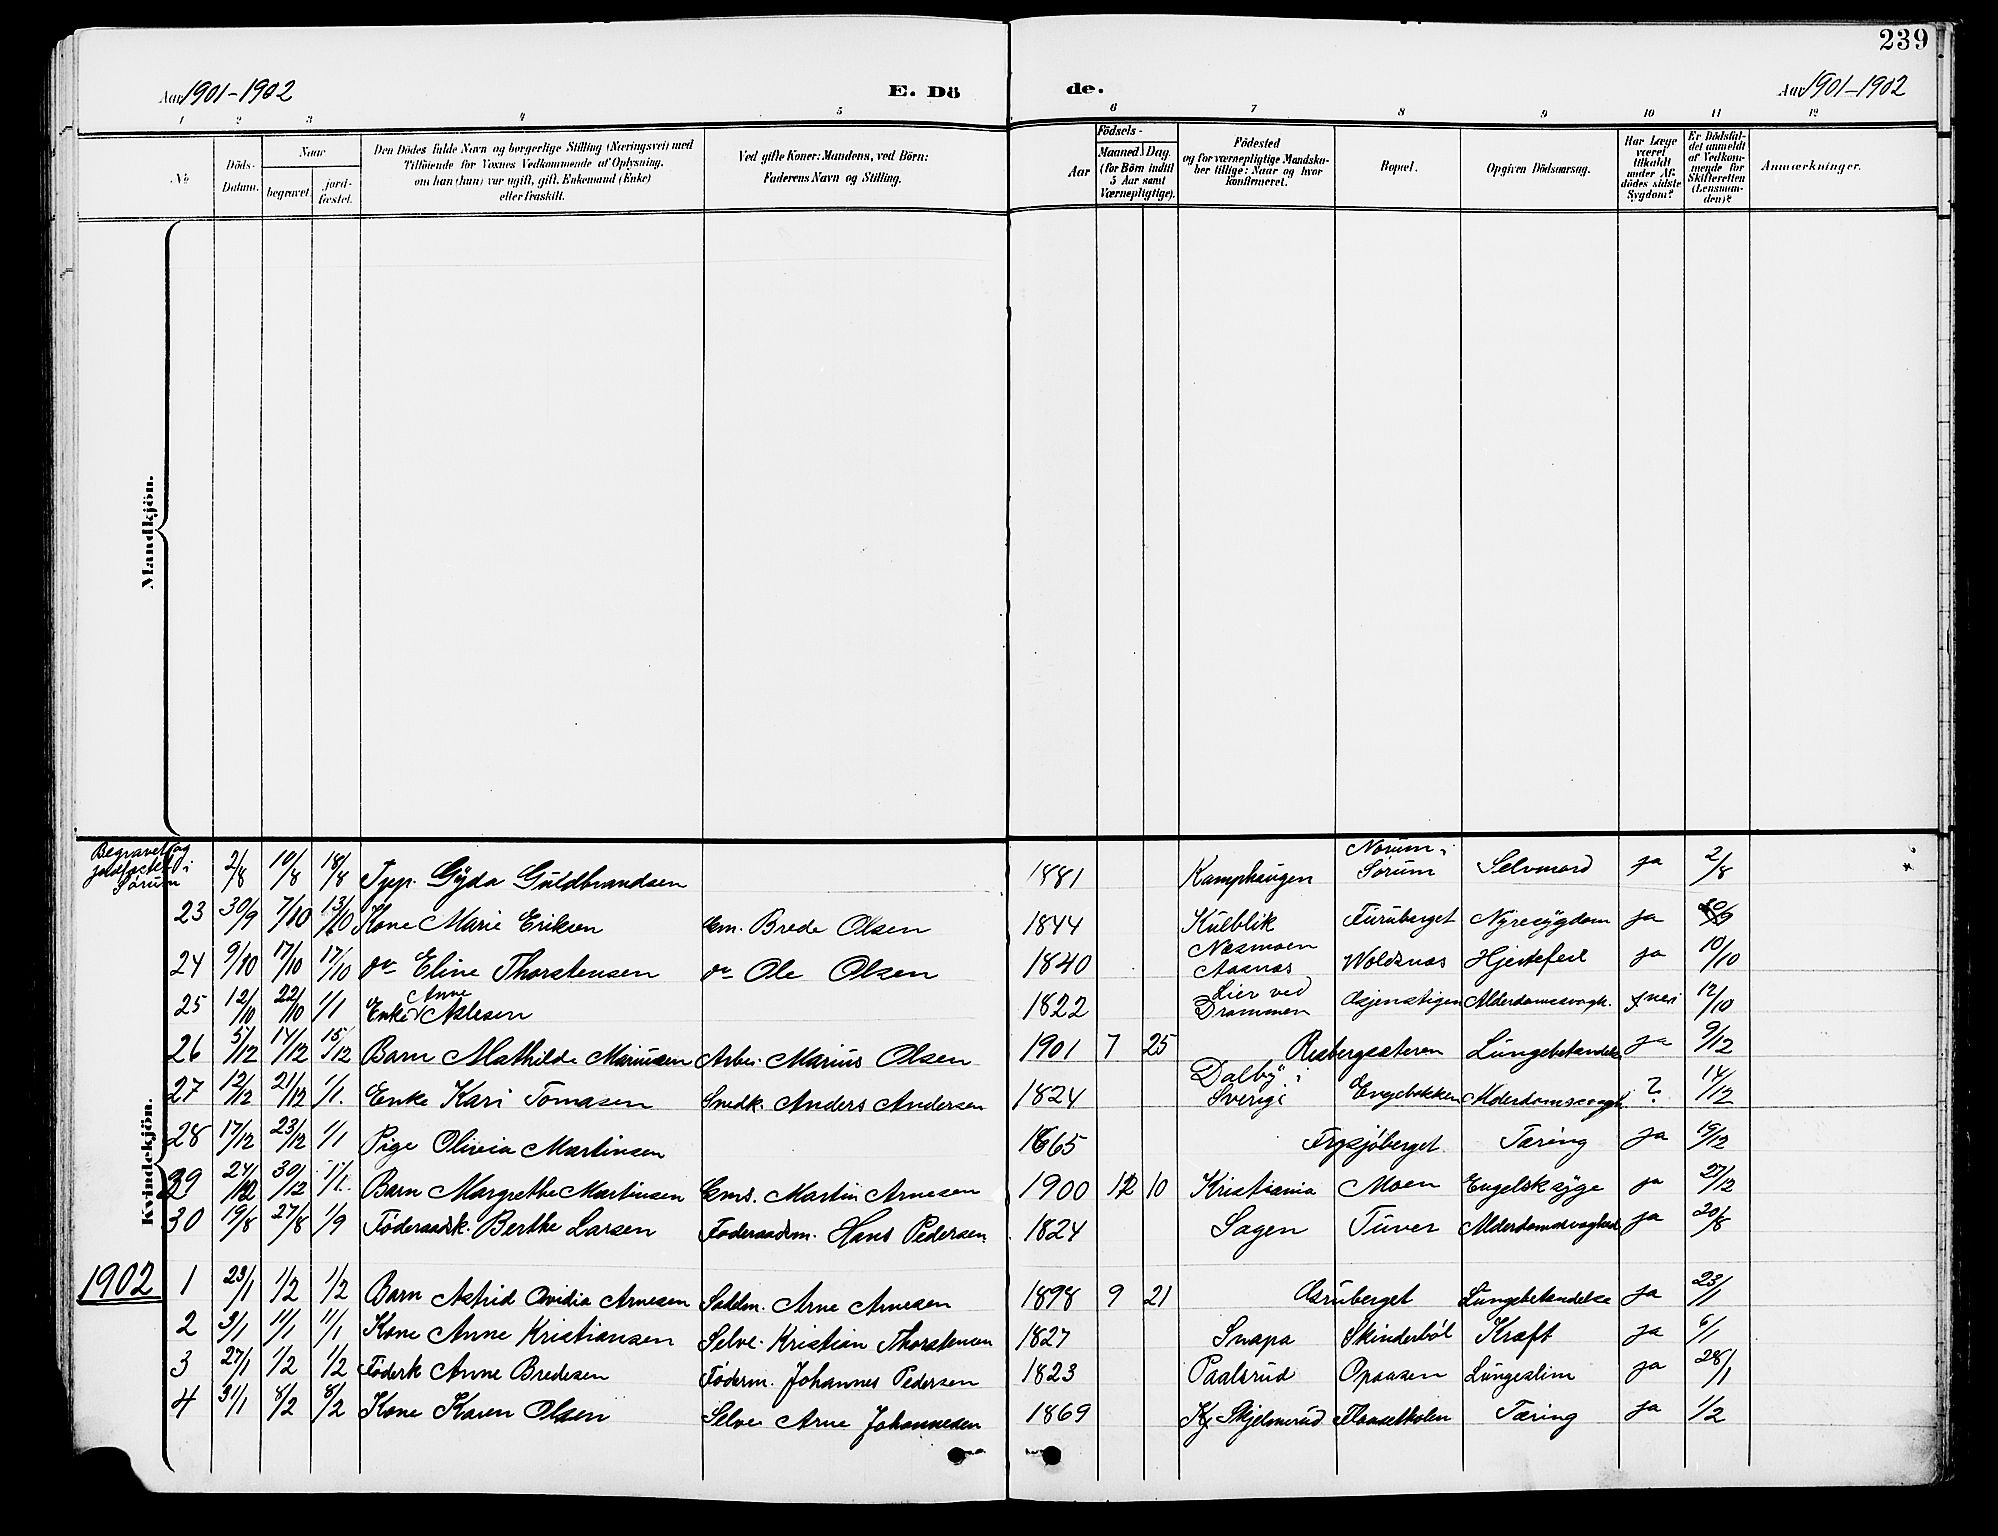 239
Aar 1901-1902 E. Dö de. Aar 1901-1902
1 2 3 4 5 6 7 8 9 10 11 12
No
Döds-Datum.
Naar
begravet.
jord-fæstet.
Den Dödes fulde Navn og borgerlige Stilling (Næringsvei) med
Tilföiende for Voxnes Vedkommende af Oplysning,
om han (hun) var ugift, gift, Enkemand (Enke)
eller fraskilt.
Ved gifte Koner: Mandens, ved Börn:
Faderens Navn og Stilling.
Födsels-
Aar
Maaned. Dag.
(for Börn indtil
5 Aar samt
Værnepligtige).
Födested
og for værnepligtige Mandska-
ber tillige: Naar og hvor
konfirmeret.
Bopæl.
Opgiven Dödsaarsag.
Har Læge
været
tilkaldt
under Af-
dödes sidste
Sygdom?
Er Dödsfal-
det anmeldt
af Vedkom-
mende for
Skifteretten
(Lensman-
den)?
Anmærkninger.
Mandkjön.
Kvindekjön.
Begravet og
jordfæstet i
Sørum
2/8 10/8 18/8 Tjep. Gyda Guldbrandsen 1881 Kamphaugen Norum i Sørum Selvmord ja 2/8
23 30/9 7/10 13/10 Kone Marie Eriksen Em. Brede Olsen 1844 Kulblik Furuberget Nyresygdom ja 30/9
24 9/10 17/10 17/10 do Eline Thorstensen do Ole Olsen 1840 Næsmoen Aasnæs Woldsnæs Hjertefeil ja 10/10
25 12/10 22/10 1/1 Enke Anne Aslesen 1822 Lier ved Drammen Esjenstigen Alderdomssvagh. nei 12/10
26 5/12 14/12 15/12 Barn Mathilde Mariusen Arbei. Marius Olsen 1901 7 25 Risbergsæteren Lungebetændelse ja 9/12
27 12/12 21/12 1/1. Enke Kari Tomasen Snedk. Anders Andersen 1824 Dalby i Sverige Engebakken Alderdomssvagh. ? 14/12
28 17/12 23/12 1/1 Pige Olivia Martinsen 1865 Frysjøberget Tæring ja 19/12
29 24/12 30/12 1/1. Barn Margrethe Martinsen Ems. Martin Arnesen 1900 12 10 Kristiania Moen Engelsk syge ja 27/12
30 19/8 27/8 1/9 Føderaadsk. Berthe Larsen Føderaadsm. Hans Pedersen 1824 Sagen Tuver Alderdomssvaghed ja 20/8
1902
1 23/1 1/2 1/2 Barn Astrid Ovidia Arnesen Saddm. Arne Arnesen 1898 9 21 Graaberget Lungebetændelse ja 23/1
2 3/1 11/1 11/1 Kone Anne Kristiansen Selve. Kristian Thorstensen 1827 Snapa Skinderböl Kræft ja 6/1
3 27/1 1/2 1/2 Føderk Anne Bredesen Føderm. Johannes Pedersen 1823 Paalsrud Opaasen Lungeslim ja 28/1
4 31/1 8/2 8/2 Kone Karen Olsen Selve Arne Johannesen 1869 Skjelmerud Flaaselkolen Tæring ja 1/2